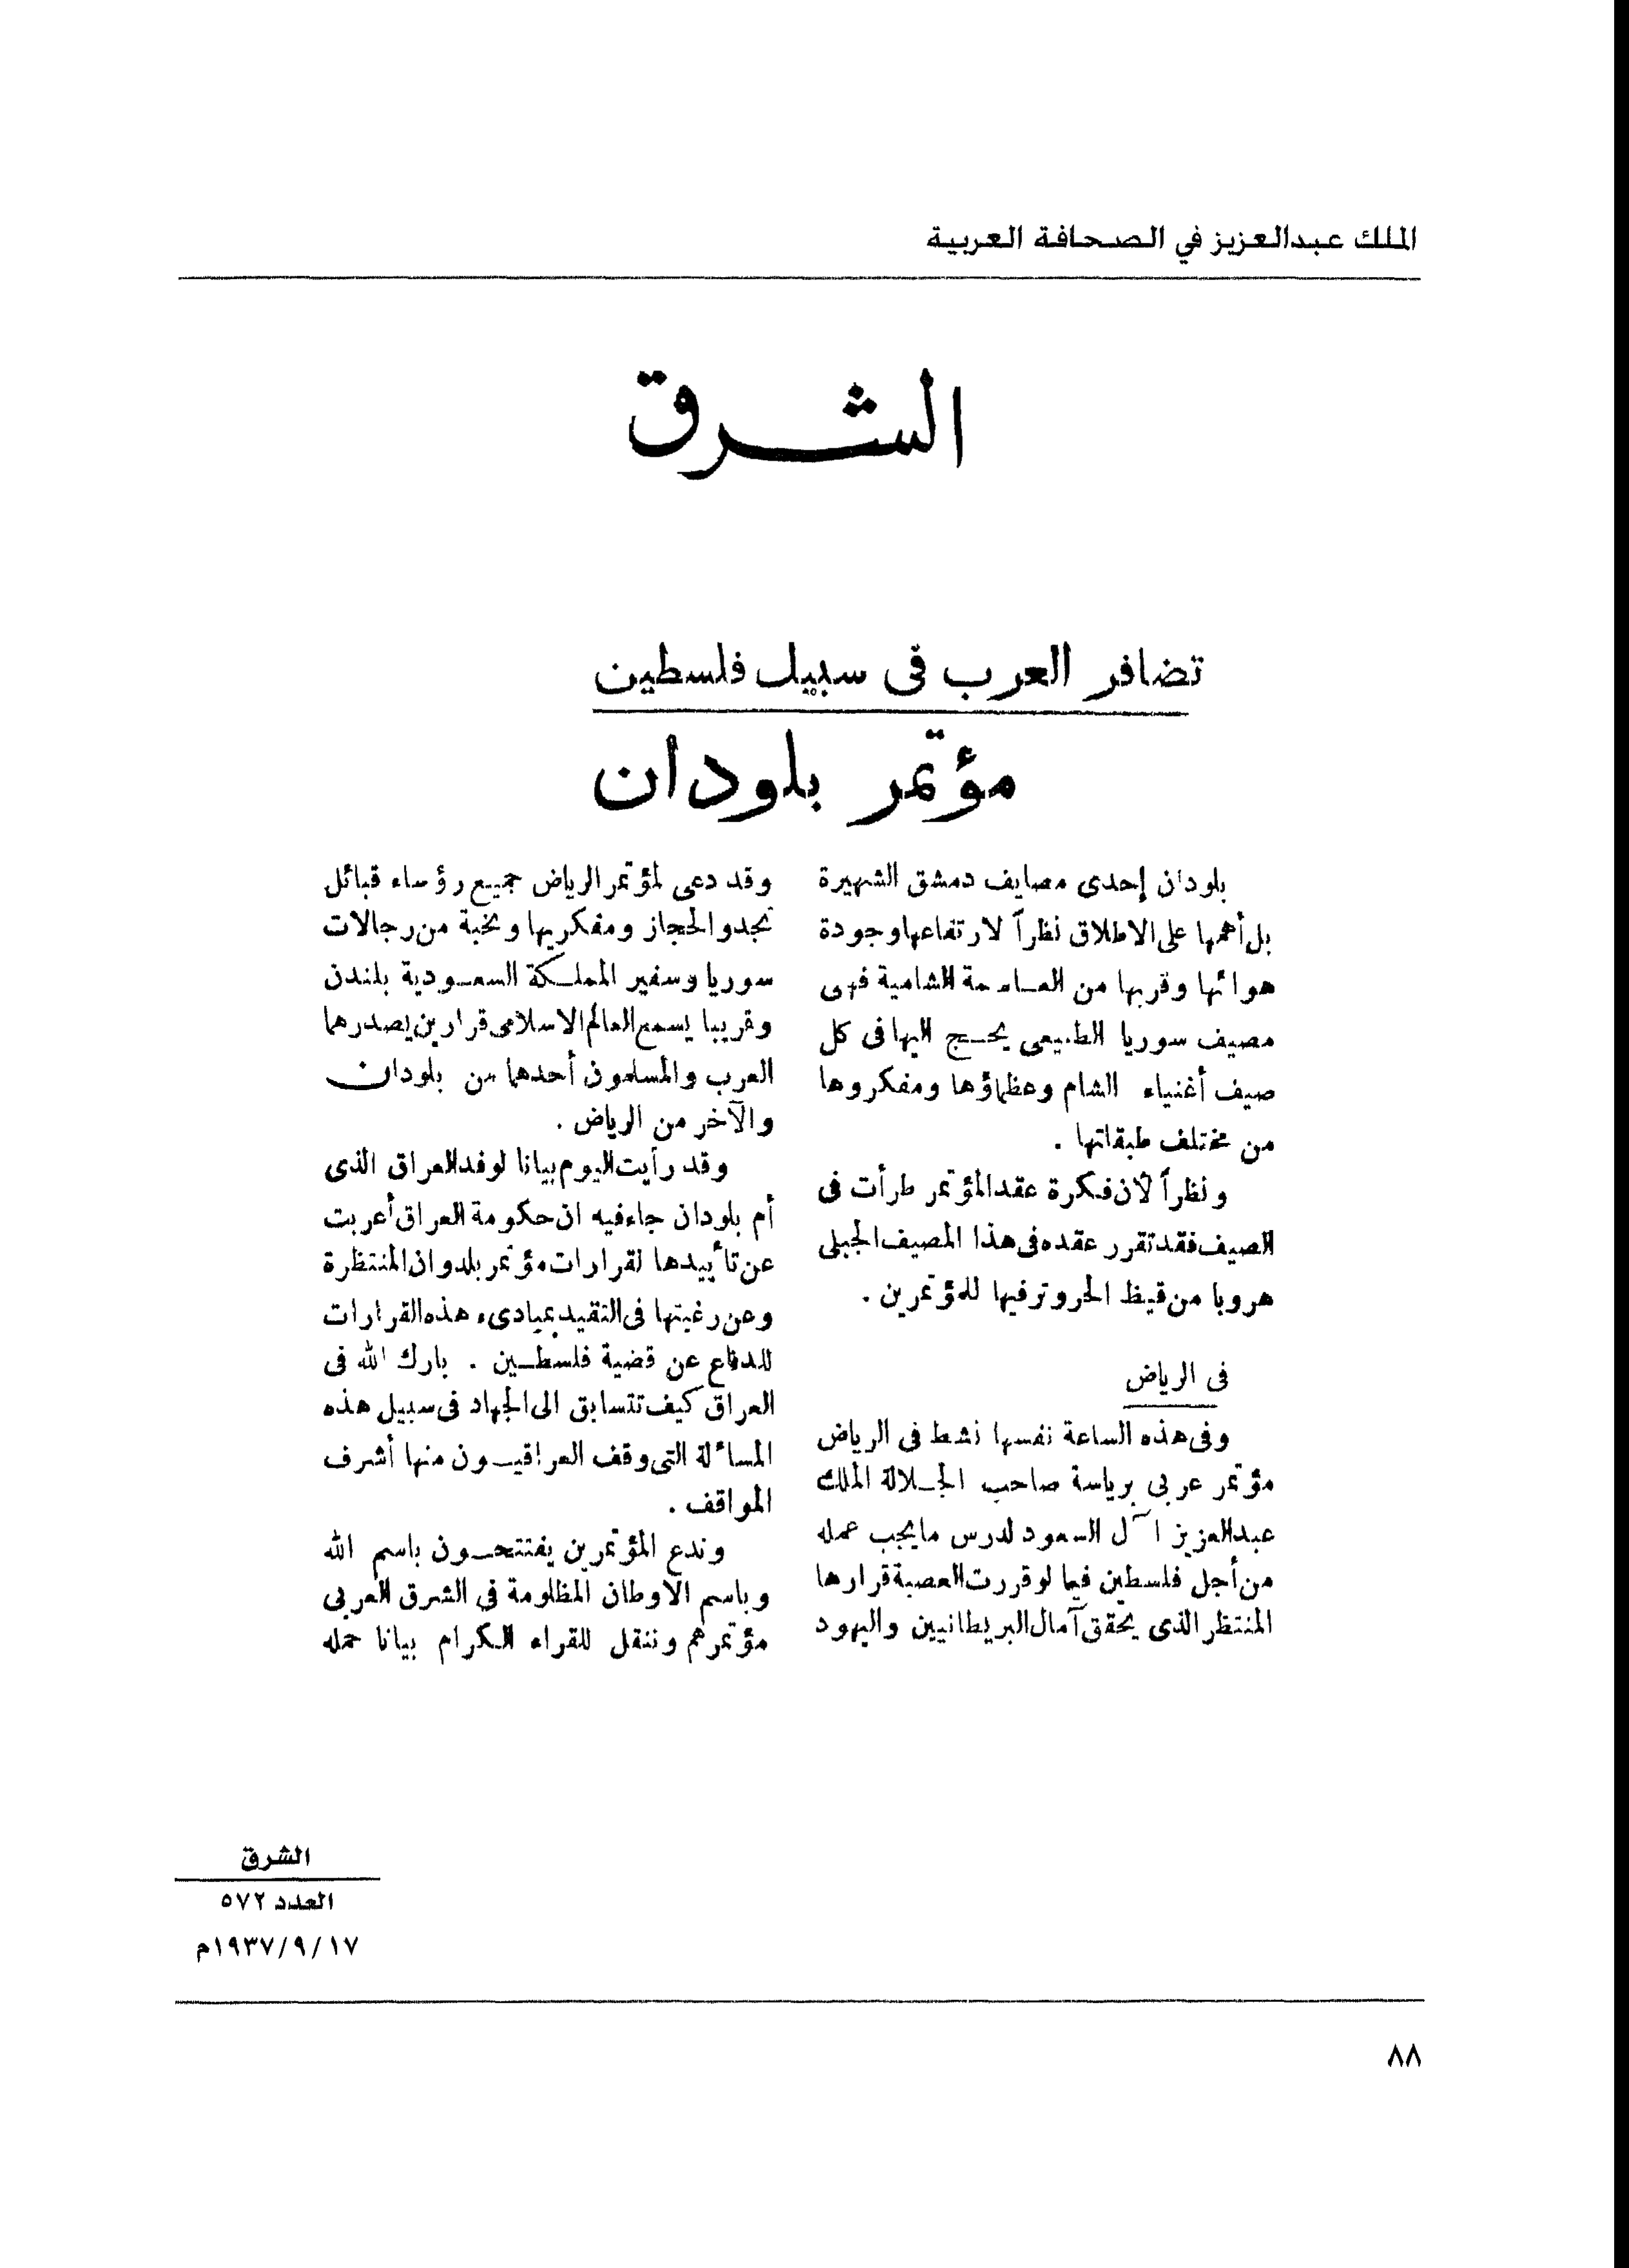 الملك عبدالعزيز في الصحافة العربية
الشرق
تضافر العرب فى سبيل فلسطين
مؤتمر بلودان
بلودان إحدى مصايف دمشق الشهيرة
بل أهمها على الاطلاق نظراً لارتفاعها وجودة
هوائها وقربها من العاصمة الشامية فهى
مصيف سوريا الطبيعى يحج اليها فى كل
صيف أغنياء الشام وعظماؤها ومفكروها
من مختلف طبقاتها .
ونظراً لأن فكرة عقد المؤتمر طرأت فى
الصيف فقد تقرر عقده فى هذا المصيف الجبلى
هروبا من قيظ الحر وترفيها للمؤتمرين .
فى الرياض
وفى هذه الساعة نفسها نشط فى الرياض
مؤتمر عربى برياسة صاحب الجلالة الملك
عبدالعزيز آل السعود لدرس مايجب عمله
من أجل فلسطين فيما لو قررت العصبة قرارها
المنتظر الذى يحقق آمال البريطانيين واليهود
وقد دعى لمؤتمر الرياض جميع رؤساء قبائل
نجد والحجاز ومفكريها ونخبة من رجالات
سوريا وسفير المملكة السعودية بلندن
وقريبا يسمع العالم الاسلامى قرارين يصدرهما
العرب والمسلمون أحدهما من بلودان
والآخر من الرياض .
وقد رأيت اليوم بيانا لوفد العراق الذى
أم بلودان جاء فيه ان حكومة العراق أعربت
عن تأييدها لقرارات مؤتمر بلدوان المنتظرة
وعن رغبتها فى التقيد بمبادىء هذه القرارات
للدفاع عن قضية فلسطين . بارك الله فى
العراق كيف تتسابق الى الجهاد فى سبيل هذه
المسألة التى وقف العراقيون منها أشرف
المواقف .
وندع المؤتمرين يفتتحون باسم الله
وباسم الأوطان المظلومة فى الشرق العربى
مؤتمرهم وننقل للقراء الكرام بيانا حمله
الشرق
العدد ٥٧٢
١٩٣٧/٩/١٧م
٨٨